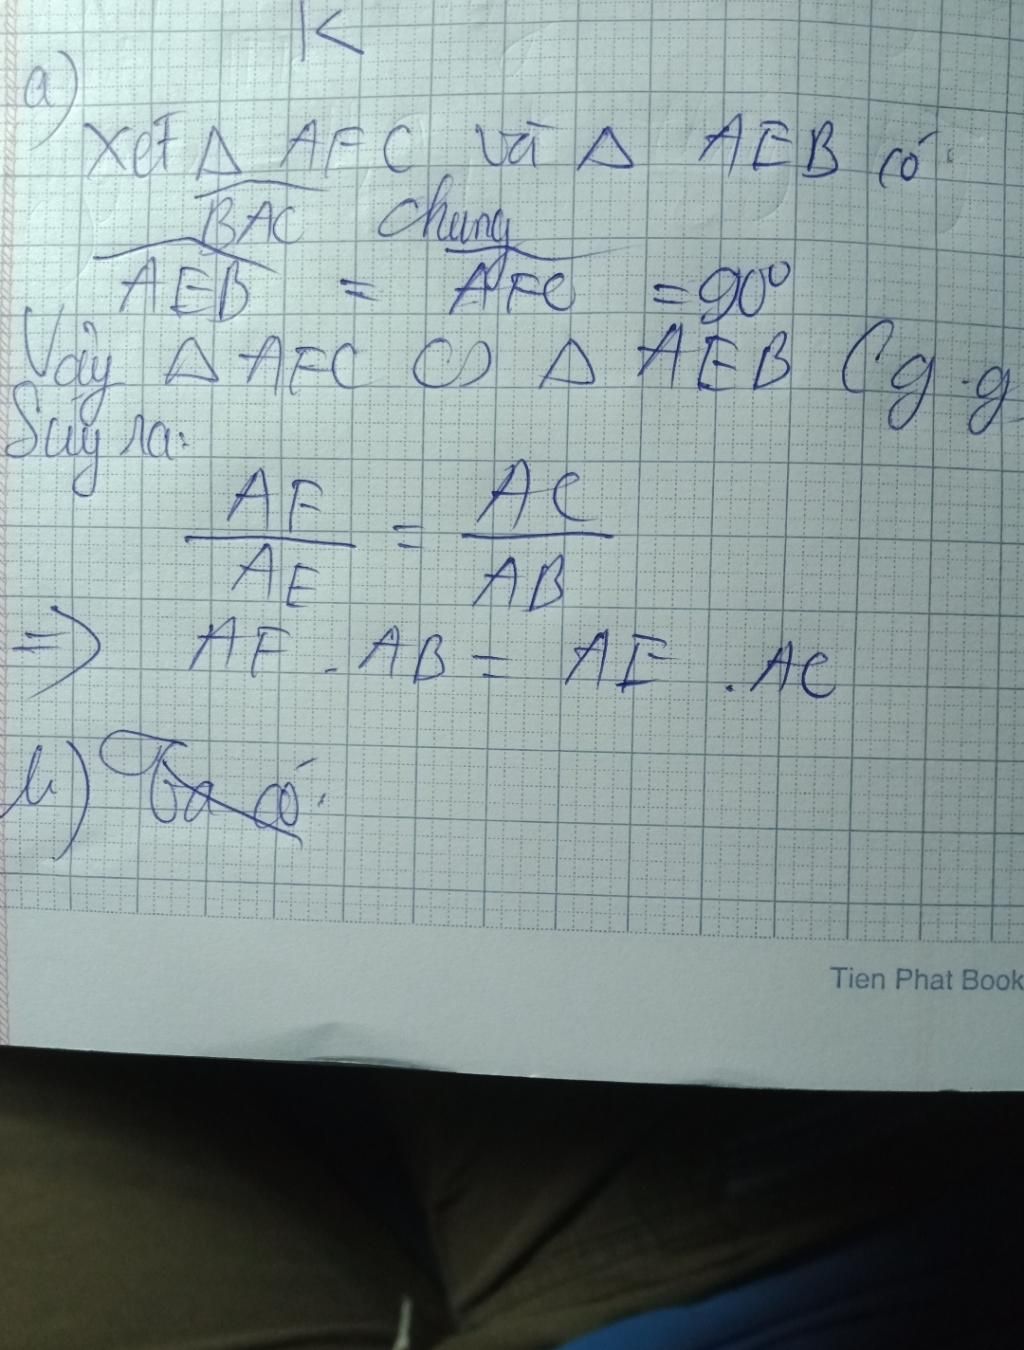 K
a)
Xét Δ AFC và Δ AEB có:
BAC chung
AEB = AFC = 90°
Vậy Δ AFC ∽ Δ AEB (g.g
Suy ra:
AF/AE = AC/AB
=> AF . AB = AE . AC
b) Ta có:
Tien Phat Book